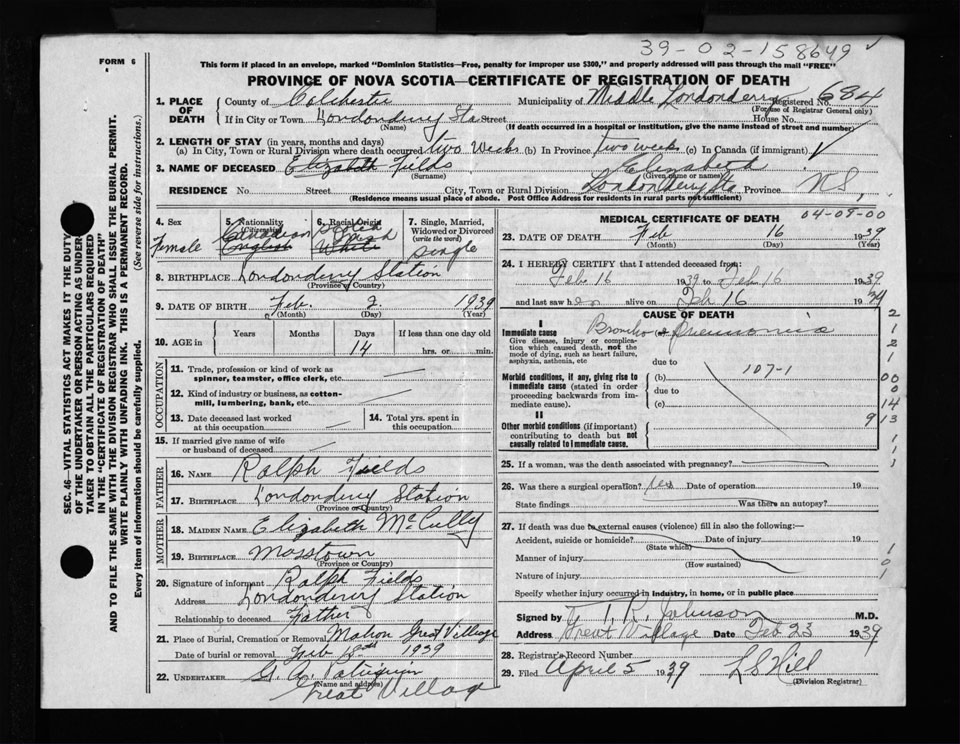 39-02-158649
FORM 6
This form if placed in an envelope, marked "Dominion Statistics—Free, penalty for improper use $300," and properly addressed will pass through the mail "FREE"
PROVINCE OF NOVA SCOTIA—CERTIFICATE OF REGISTRATION OF DEATH
SEC. 46—VITAL STATISTICS ACT MAKES IT THE DUTY
OF THE UNDERTAKER OR PERSON ACTING AS UNDER
TAKER TO OBTAIN ALL THE PARTICULARS REQUIRED
IN THE "CERTIFICATE OF REGISTRATION OF DEATH"
AND TO FILE THE SAME WITH THE DIVISION REGISTRAR WHO SHALL ISSUE THE BURIAL PERMIT.
WRITE PLAINLY WITH UNFADING INK. THIS IS A PERMANENT RECORD.
Every item of information should be carefully supplied. (See reverse side for instructions.)
1. PLACE OF DEATH County of Colchester Municipality of Middle Londonderry Registered No. 684
(For use of Registrar General only)
If in City or Town Londonderry Sta Street House No.
(Name) (If death occurred in a hospital or institution, give the name instead of street and number)
2. LENGTH OF STAY (in years, months and days)
(a) In City, Town or Rural Division where death occurred two Weeks (b) In Province two weeks (c) In Canada (if immigrant)
3. NAME OF DECEASED Elizabeth Fields Elizabeth
(Surname) (Given name or names)
RESIDENCE No. Street City, Town or Rural Division Londonderry Sta Province N.S.
(Residence means usual place of abode. Post Office Address for residents in rural parts not sufficient)
4. Sex Female
5. Nationality (Citizenship) Canadian English
6. Racial Origin Scotch Irish White
7. Single, Married, Widowed or Divorced (write the word) Single
8. BIRTHPLACE Londonderry Station
(Province or Country)
9. DATE OF BIRTH Feb. 2. 1939
(Month) (Day) (Year)
10. AGE in Years Months Days If less than one day old
14 hrs. or min.
OCCUPATION
11. Trade, profession or kind of work as
spinner, teamster, office clerk, etc.
12. Kind of industry or business, as cotton-
mill, lumbering, bank, etc.
13. Date deceased last worked
at this occupation
14. Total yrs. spent in
this occupation
15. If married give name of wife
or husband of deceased
FATHER
16. NAME Ralph Fields
17. BIRTHPLACE Londonderry Station
(Province or Country)
MOTHER
18. MAIDEN NAME Elizabeth McCully
19. BIRTHPLACE Masstown
(Province or Country)
20. Signature of informant Ralph Fields
Address Londonderry Station
Relationship to deceased Father
21. Place of Burial, Cremation or Removal Great Village
Date of burial or removal Feb 1939
22. UNDERTAKER
(Name and address)
Great Village
MEDICAL CERTIFICATE OF DEATH
04-09-00
23. DATE OF DEATH Feb 16 1939
(Month) (Day) (Year)
24. I HEREBY CERTIFY that I attended deceased from:
Feb. 16 1939 to Feb. 16 1939
and last saw her alive on Feb. 16 19
CAUSE OF DEATH
I
Immediate cause Broncho Pneumonia
Give disease, injury or complica-
tion which caused death, not the
mode of dying, such as heart failure,
asphyxia, asthenia, etc
due to
Morbid conditions, if any, giving rise to
immediate cause (stated in order
proceeding backwards from im-
mediate cause).
(b) 107-1
due to
(c)
II
Other morbid conditions (if important)
contributing to death but not
causally related to immediate cause.
2
1
2
1
00
0
14
9 13
1
1
1
25. If a woman, was the death associated with pregnancy?
26. Was there a surgical operation? Date of operation 19
State findings Was there an autopsy?
27. If death was due to external causes (violence) fill in also the following:—
Accident, suicide or homicide? Date of injury 19
(State which)
Manner of injury
(How sustained)
Nature of injury
1
0
1
Specify whether injury occurred in industry, in home, or in public place
Signed by T. R. Johnson M.D.
Address Great Village Date Feb 23 1939
28. Registrar's Record Number
29. Filed April 5 1939 L S Hill
(Division Registrar)